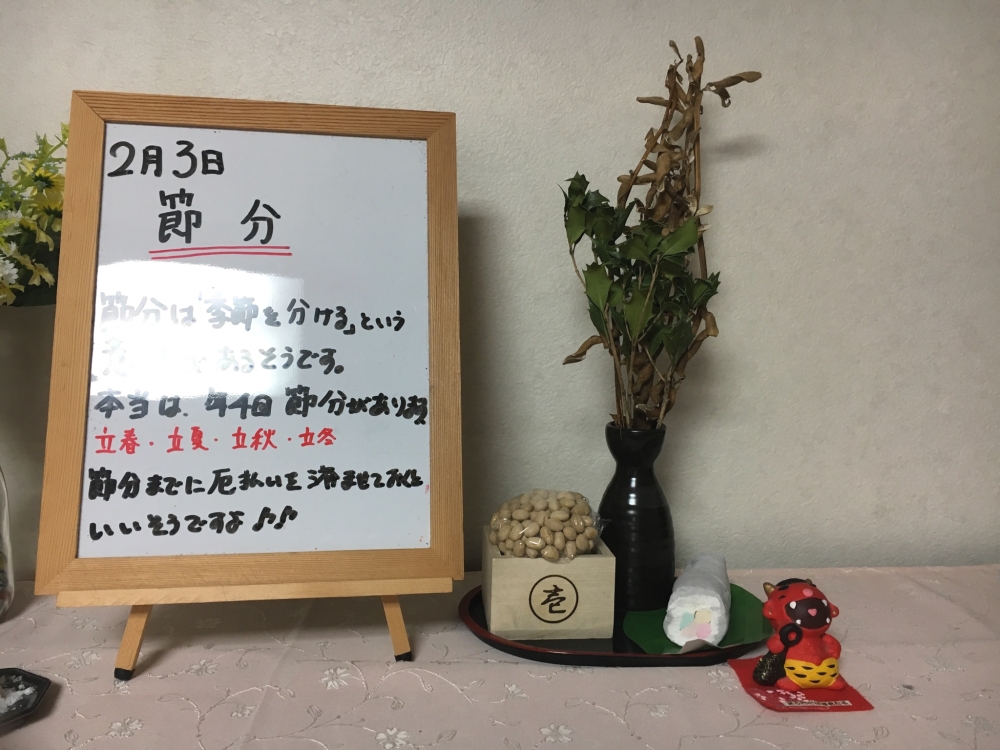 2月3日
節分
節分は「季節を分ける」という
あるそうです。
本当は、年4回 節分があります
立春・立夏・立秋・立冬
節分までに厄払いを済ませておくと
いいそうですよ♪♪
壱